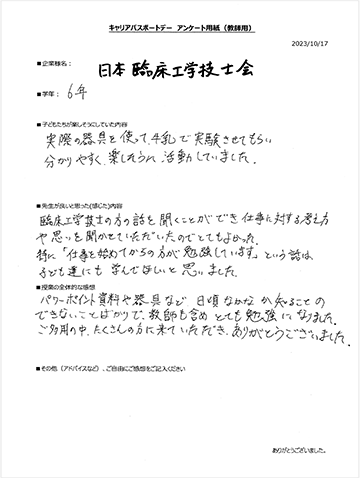 キャリアパスポートデー アンケート用紙（教師用）
2023/10/17
■企業様名：
日本臨床工学技士会
■学年：
6年
■子どもたちが楽しそうにしていた内容
実際の器具を使って、牛乳で実験させてもらい
分かりやすく、楽しそうに活動していました。
■先生が良いと思った(感じた)内容
臨床工学技士の方の話を聞くことができ仕事に対する考え方
や思いを聞かせていただいたのでとてもよかった。
特に「仕事を始めてからの方が勉強しています。」という話は
子ども達にも学んでほしいと思いました。
■授業の全体的な感想
パワーポイント資料や器具など日頃なかなか知ることの
できないことばかりで、教師も含めとても勉強になりました。
ご多用の中、たくさんの方に来ていただき、ありがとうございました。
■その他（アドバイスなど）、ご自由にご感想をご記入ください
ありがとうございました。